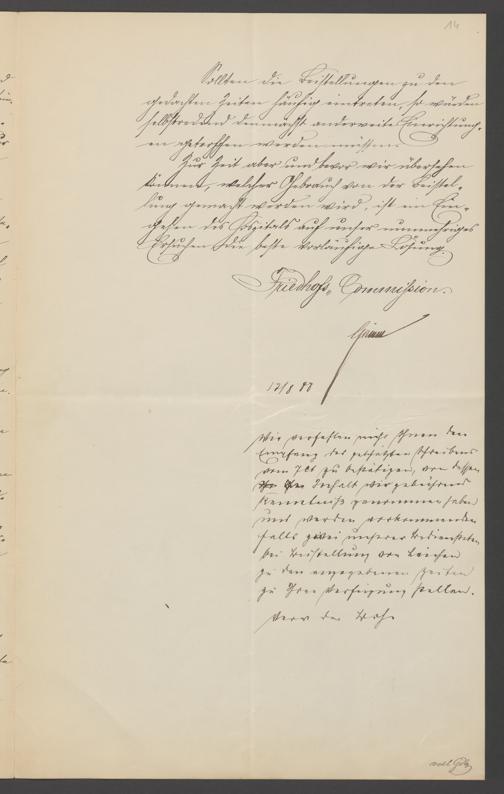 14
Sollten die Beistellungen zu den
gedachten Zeiten häufig eintreten, so würden
selbstredend demnächst anderweite Einrichtung-
en getroffen werden müssen.
Zur Zeit aber und bevor wir übersehen
können, welcher Gebrauch von der Beistel-
lung gemacht werden wird, ist ein Ein-
gehen des Hospitals auf unser nunmehriges
Ersuchen die beste vorläufige Lösung.
Friedhofs-Commission.
12/8 88
Wir verfehlen nicht Ihnen den
Empfang des geschätzten Schreibens
vom 7 ct zu bestätigen, von dessen
Inhalt wir gebührend
Kenntniß genommen haben
und werden vorkommenden
falls zwei unserer Bediensteten
bei Beistellung von Leichen
zu den angegebenen Zeiten
zu Ihrer Verfügung stellen.